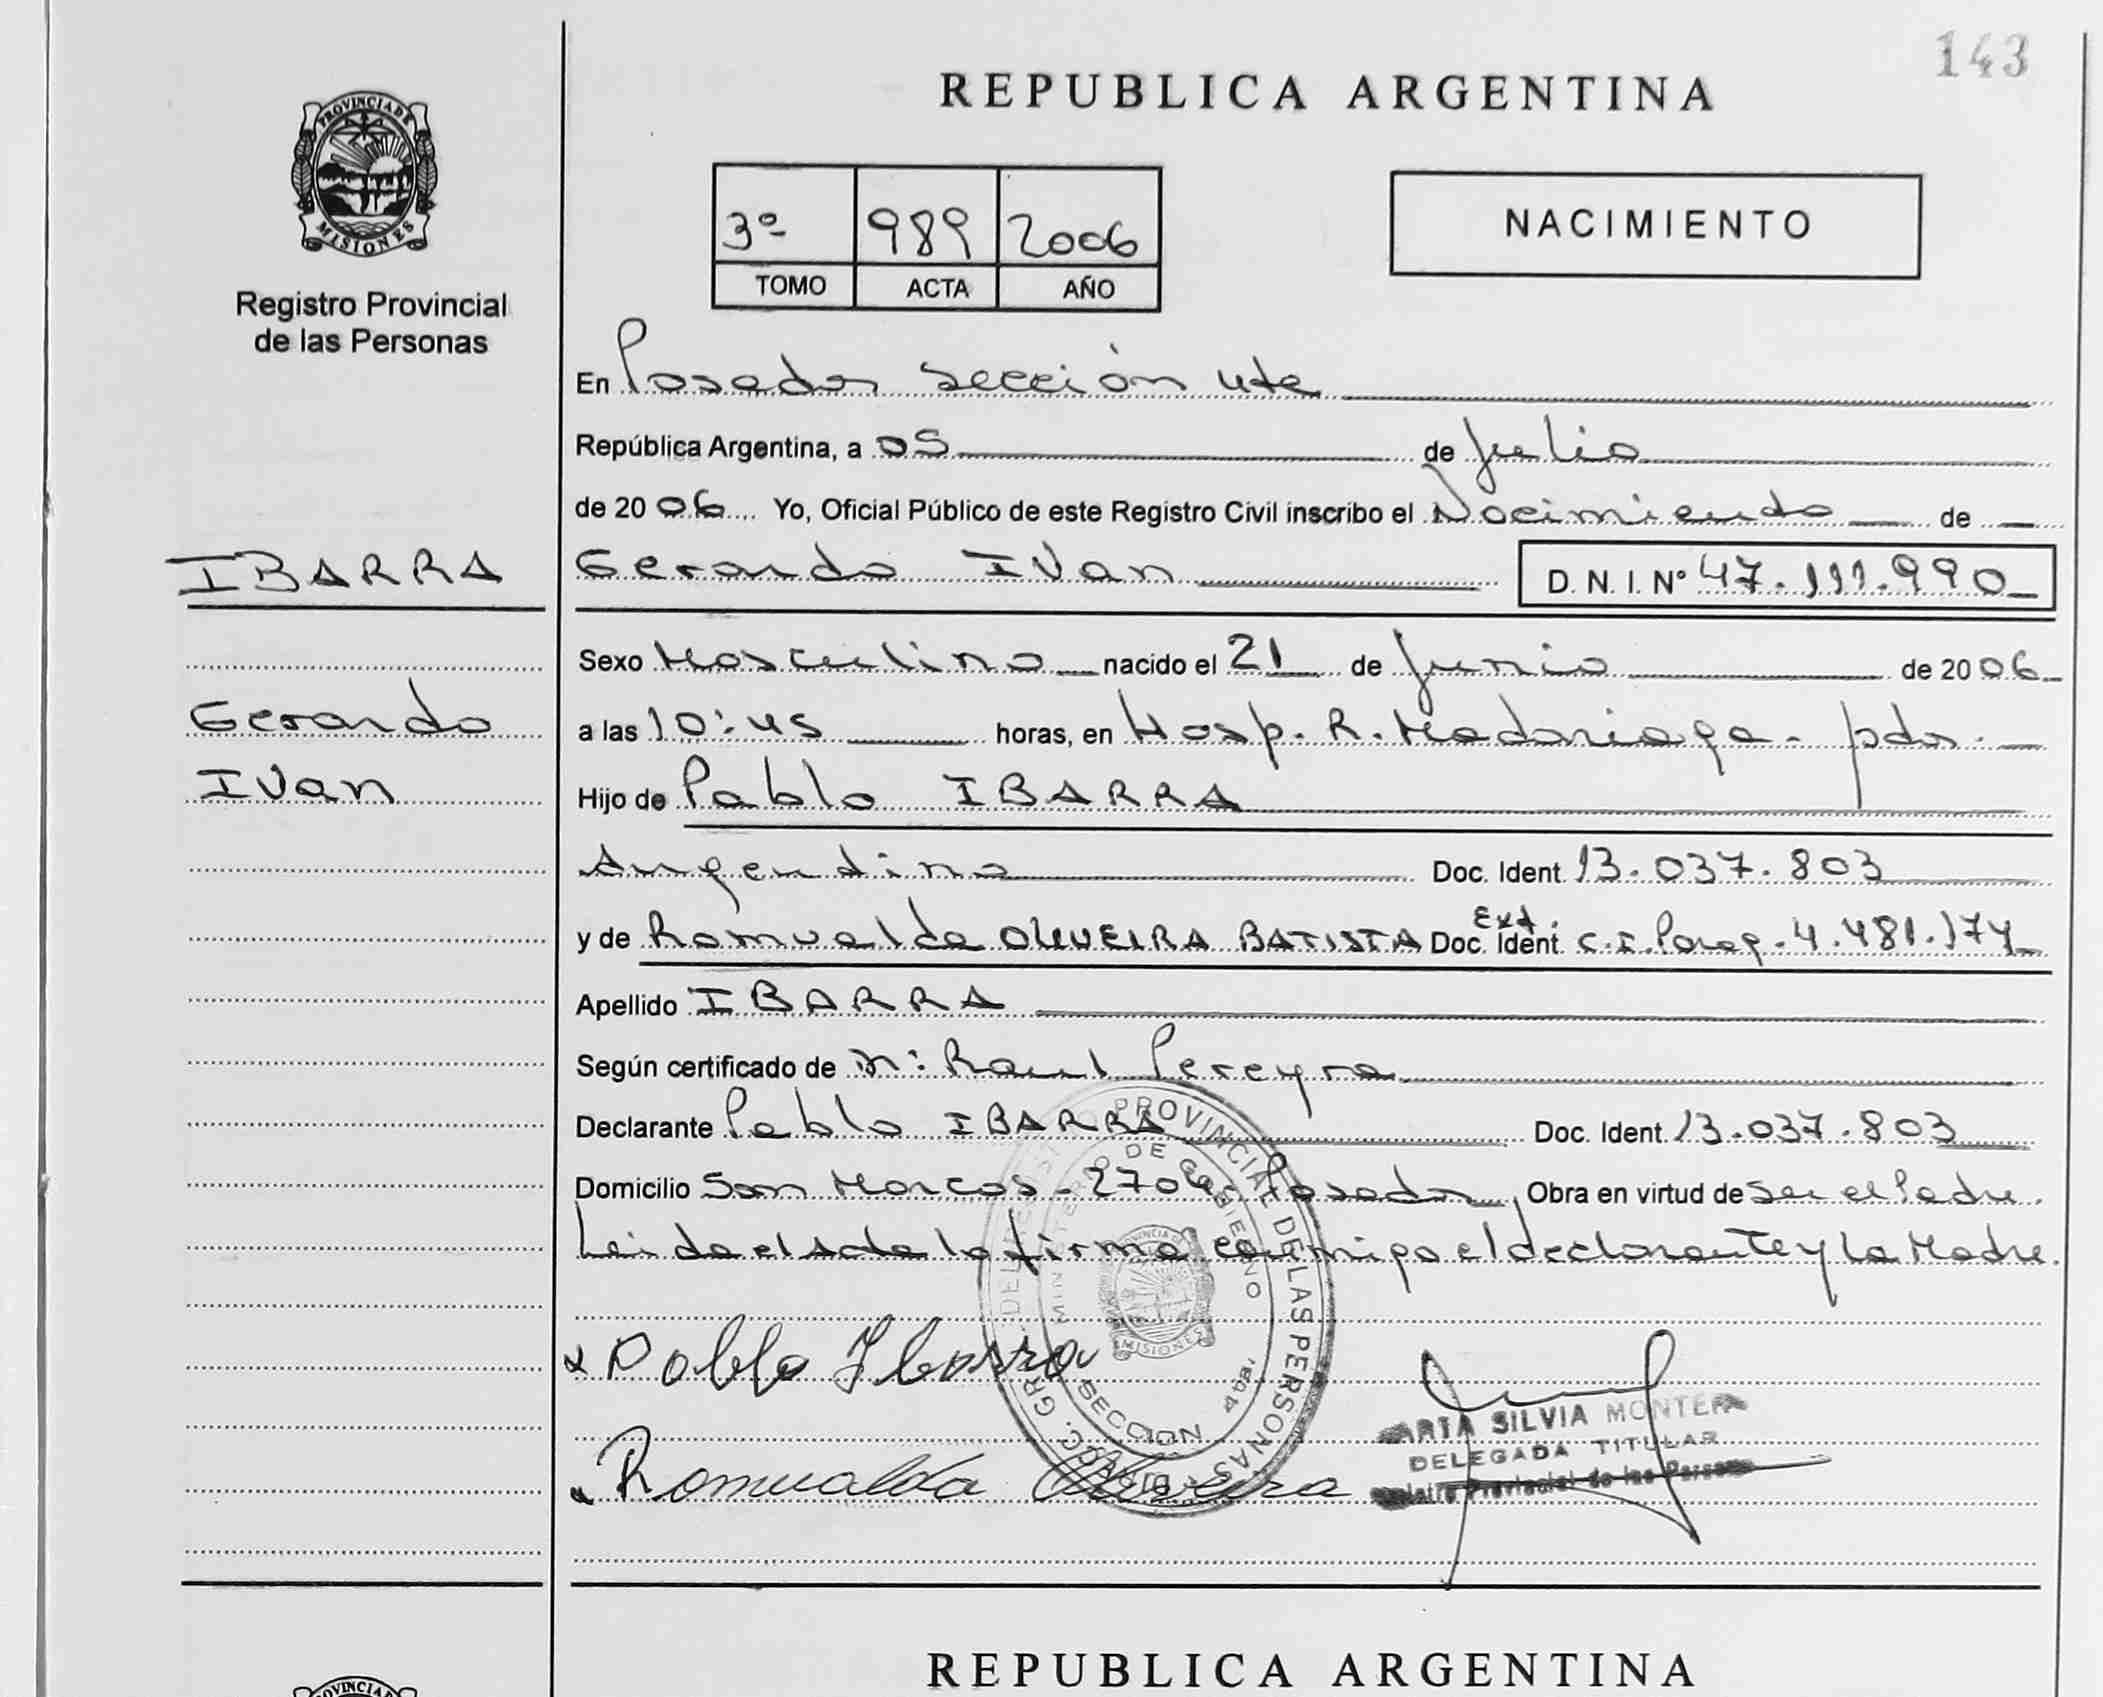 143
REPUBLICA ARGENTINA
PROVINCIA DE
MISIONES
Registro Provincial
de las Personas
3º 989 2006
TOMO ACTA AÑO
NACIMIENTO
En Posadas sección 4ta
República Argentina, a 05 de Julio
de 2006 Yo, Oficial Público de este Registro Civil inscribo el Nacimiento de
IBARRA Gerardo Ivan D. N. I. Nº 47.111.990
Sexo Masculino nacido el 21 de Junio de 2006
Gerardo a las 10:45 horas, en Hosp. R. Madariaga - pdas.
Ivan Hijo de Pablo IBARRA
Argentino Doc. Ident. 13.037.803
y de Romualda OLIVEIRA BATISTA Doc. Ext. Ident. C.I. Parag. 4.481.174
Apellido IBARRA
Según certificado de Raul Pereyra
Declarante Pablo IBARRA Doc. Ident. 13.037.803
Domicilio San Marcos - 2704 - Posadas, Obra en virtud de ser el Padre.
Leida el acta la firma conmigo el declarante y la Madre.
Pablo Ibarra
Romualda Oliveira
PROVINCIAL DE LAS PERSONAS
MINISTERIO DE GOBIERNO
SECCION
MISIONES
SILVIA MONTE
DELEGADA TITULAR
Provincial de las Persona
REPUBLICA ARGENTINA